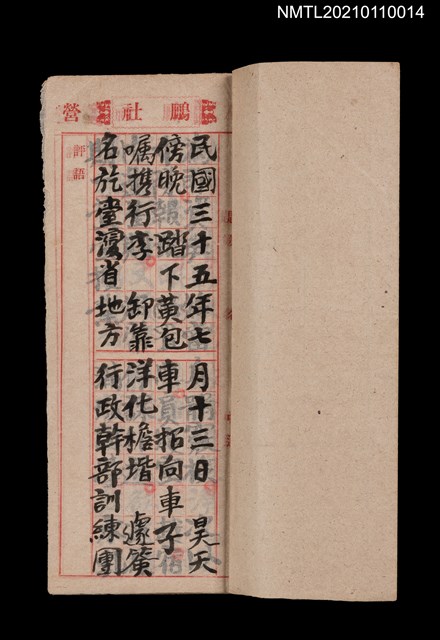 NMTL20210110014
鵬社
營
民國三十五年七月十三日 昊天
傍晚踏下黃包車員招向車子
囑携行李 卸靠洋化檐堦 遽簧
名於臺灣省地方行政幹部訓練團
評語